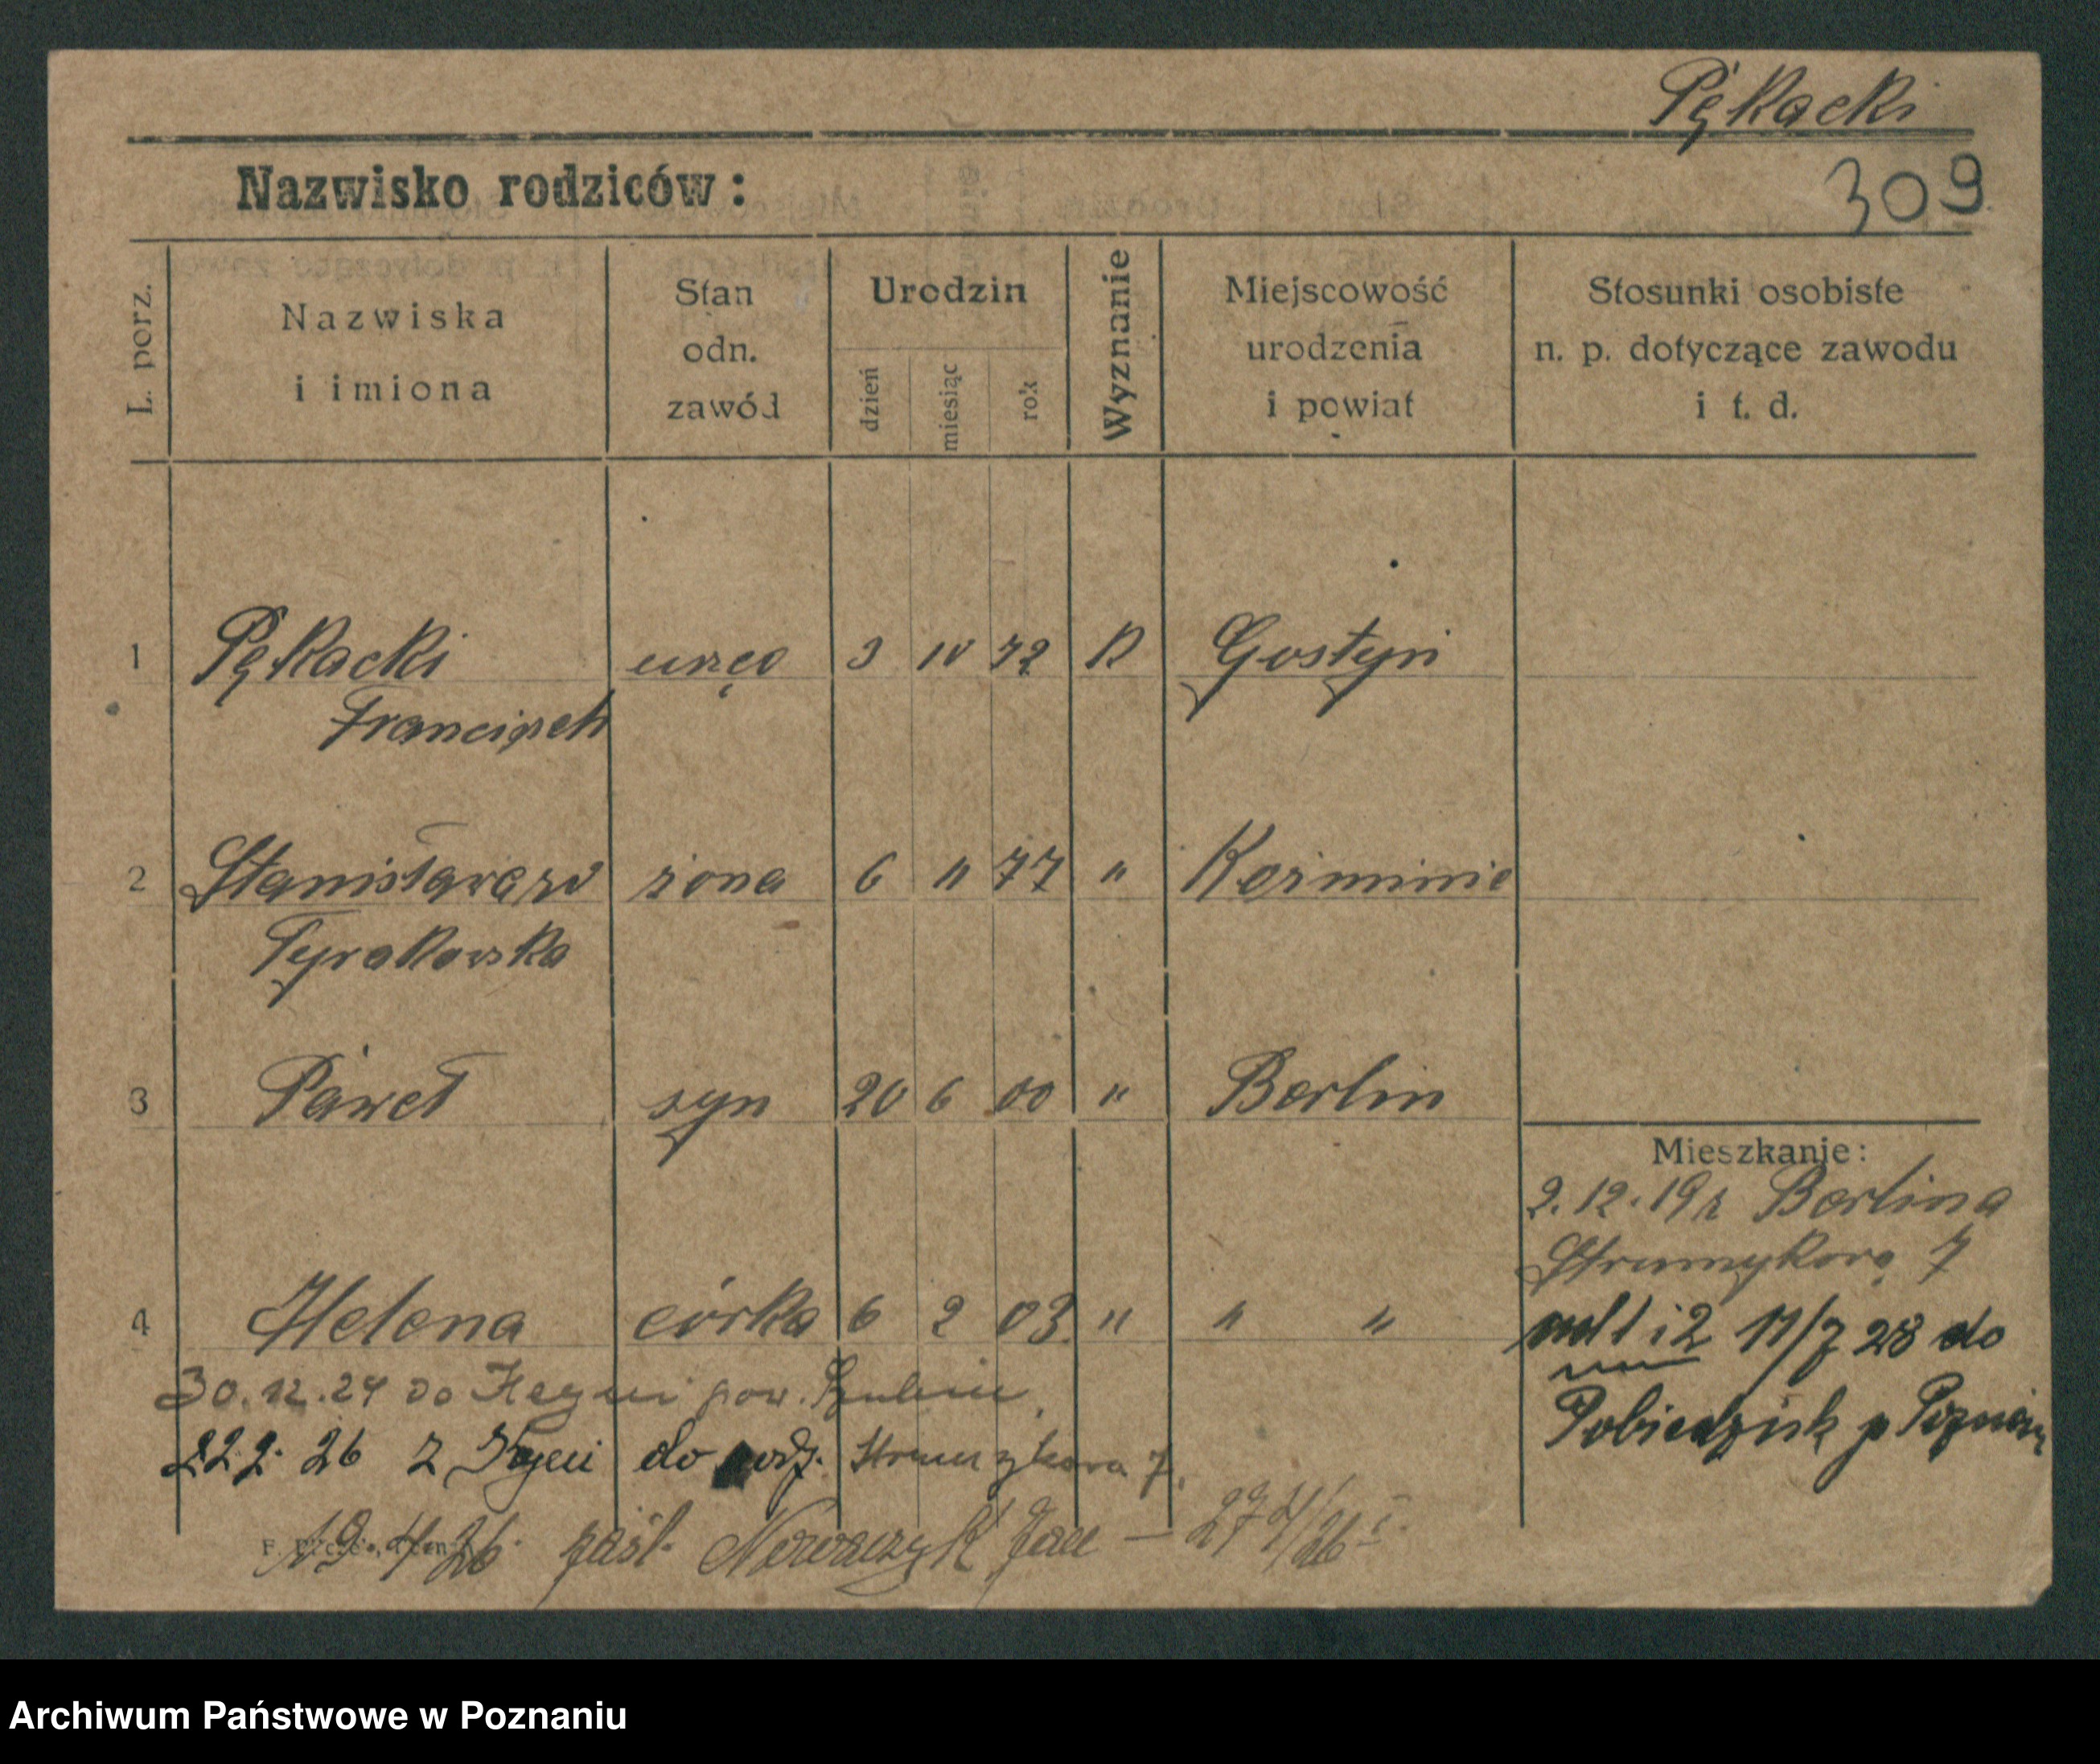 Pękacki
309
Nazwisko rodziców:
L. porz.
Nazwiska
i imiona
Stan
odn.
zawód
Urodzin
dzień
miesiąc
rok
Wyznanie
Miejscowość
urodzenia
i powiat
Stosunki osobiste
n. p. dotyczące zawodu
i t. d.
1 Pękacki 3 10 72 Gostyń
Franciszek
2 Stanisława żona 6 11 77 " Koźminie
Tyrakowska
3 Paweł syn 20 6 00 " Berlin
Mieszkanie:
2.12.19 z Berlina
Strumykowa 7
4 Helena córka 6 2 03 " " "
1 i 2 11/7 28 do
Pobiedzisk p Poznań
30.12.24 do Kcyni pow. Szubin
22.2.26 z Kcyni do rodz. Strumykowa 7.
19.4.26 Nowaczyk
Archiwum Państwowe w Poznaniu